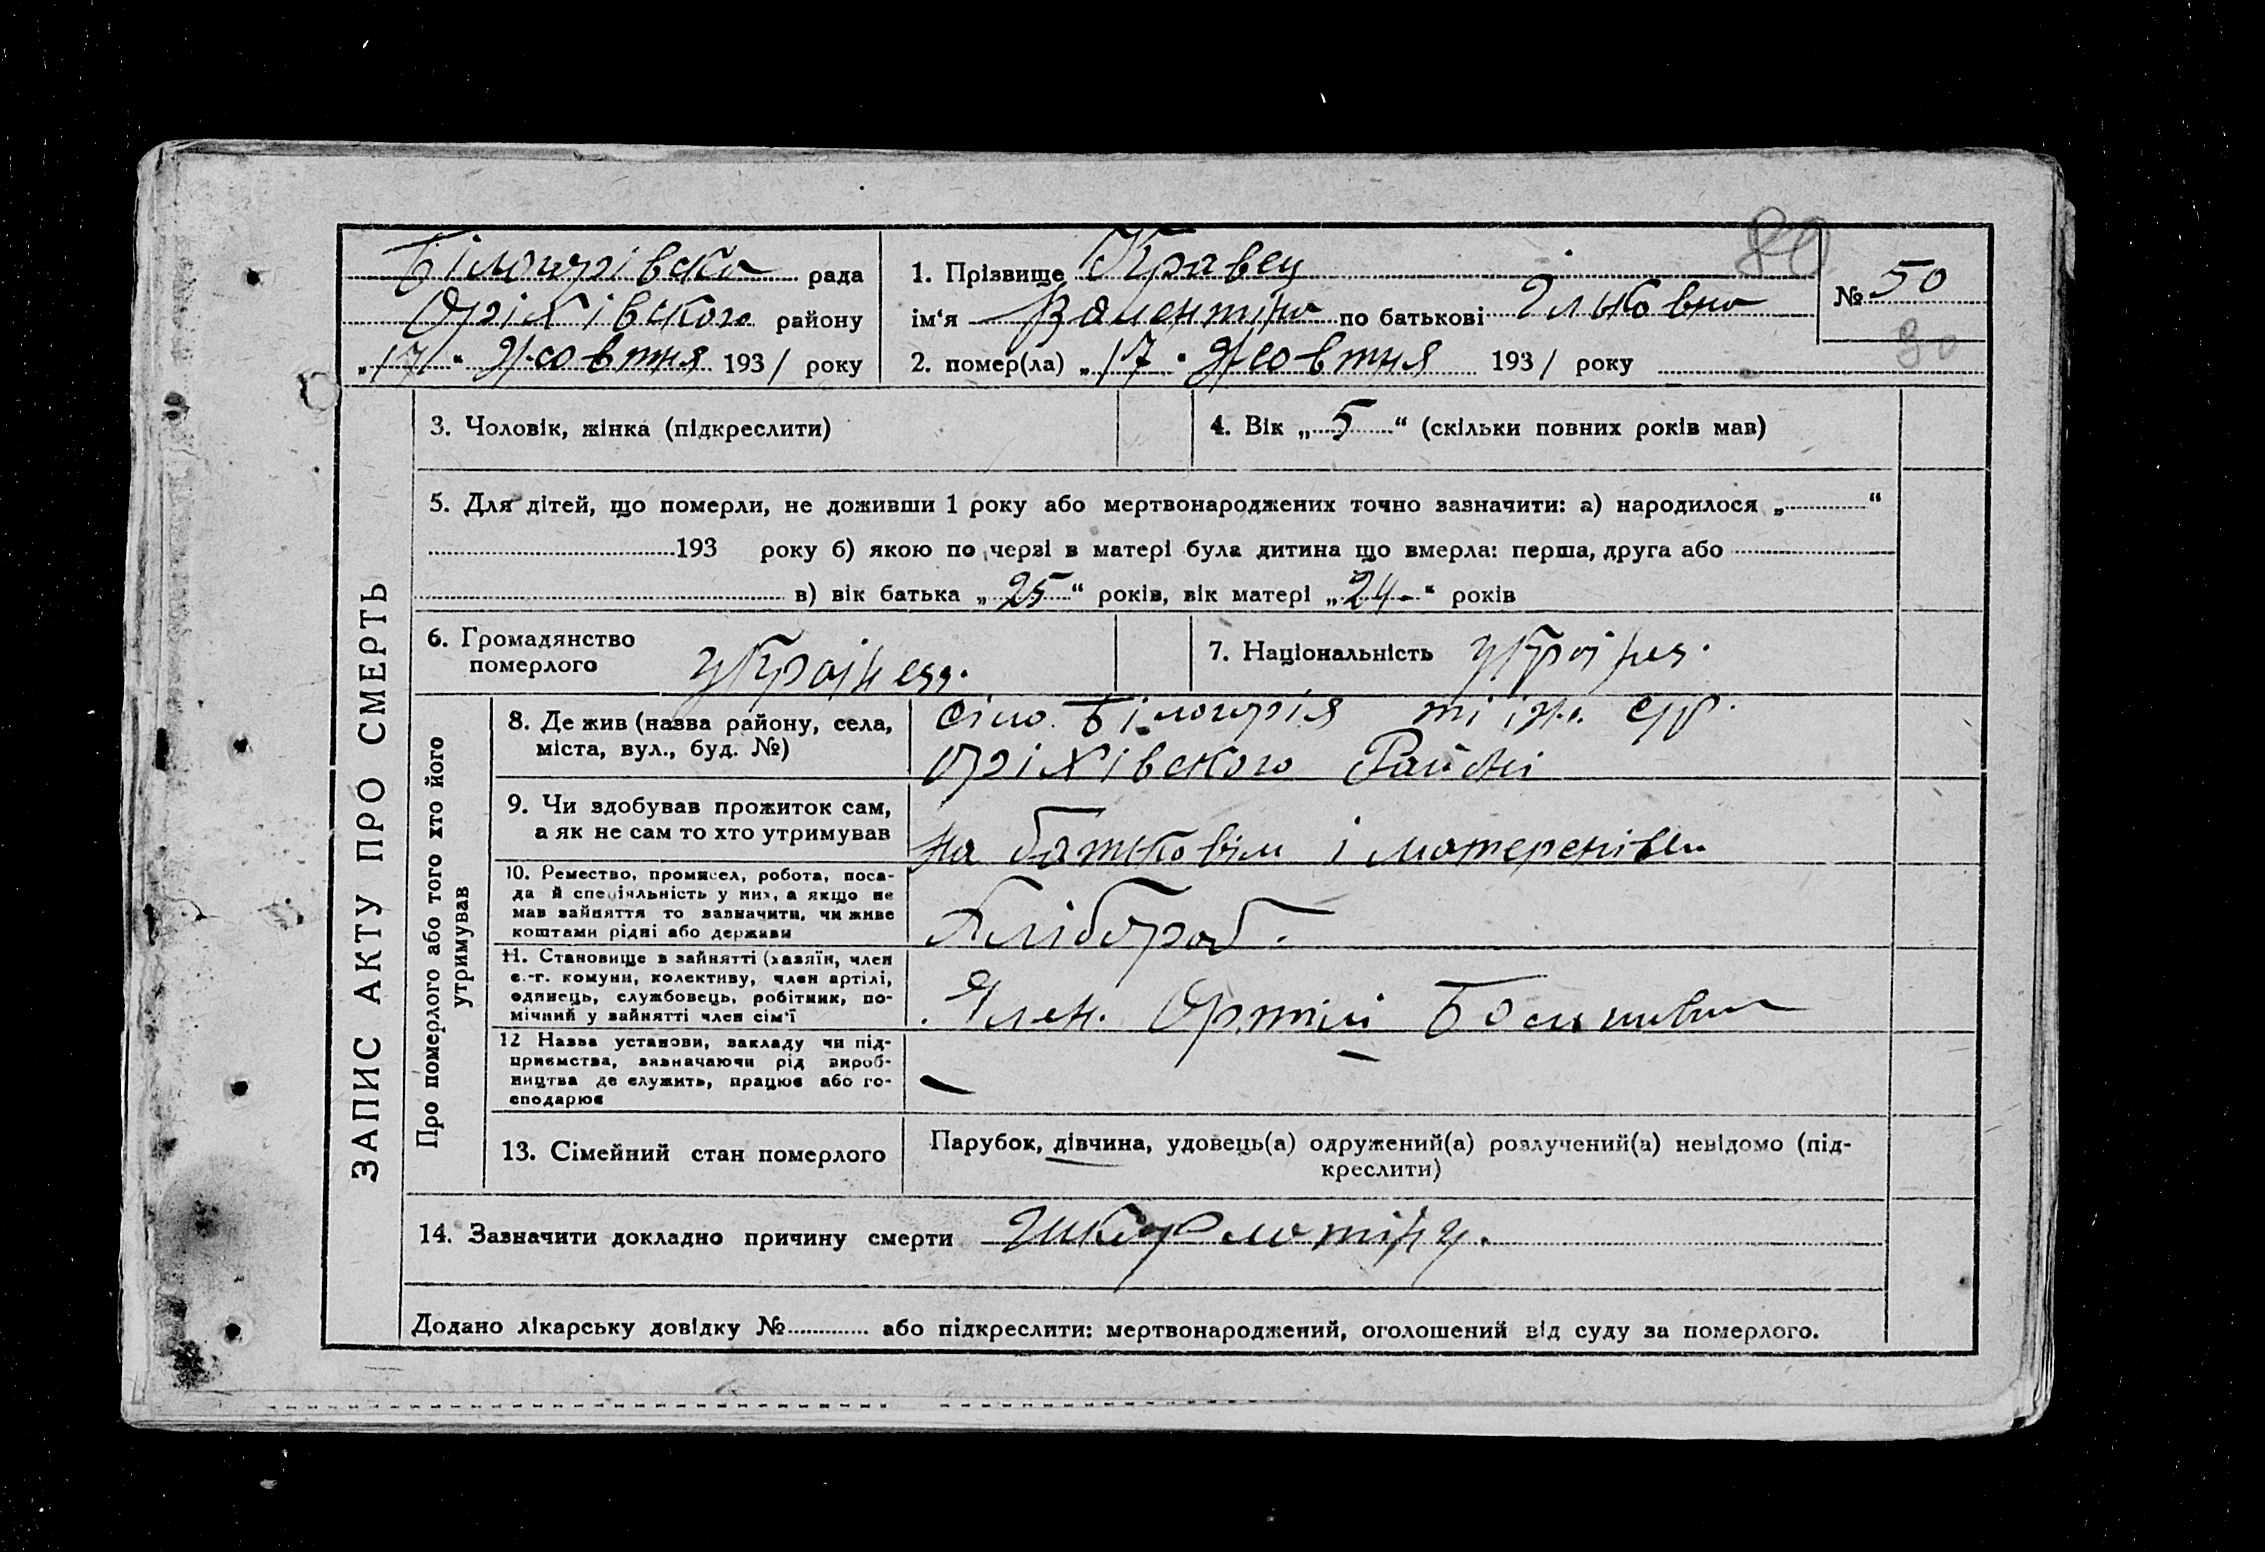 Білогірівска рада
Оріхівского району
„17“ жовтня 1931 року
1. Прізвище Кравец
ім‘я Валентіна по батькові Ільковна
2. помер(ла) „17“ жовтня 1931 року
№ 50
89
90
ЗАПИС АКТУ ПРО СМЕРТЬ
3. Чоловік, жінка (підкреслити)
4. Вік „5“ (скільки повних років мав)
5. Для дітей, що померли, не доживши 1 року або мертвонароджених точно зазначити: а) народилося „ “
193 року б) якою по черзі в матері була дитина що вмерла: перша, друга або
в) вік батька „25“ років, вік матері „24“ років
6. Громадянство
померлого
7. Національність
Про померлого або того хто його
утримував
8. Де жив (назва району, села,
міста, вул., буд. №)
Білогорія
оріхівского Району
9. Чи здобував прожиток сам,
а як не сам то хто утримував
на батьковім і материнівім
10. Ремество, промисел, робота, поса-
да й спеціяльність у них, а якщо не
мав зайняття то зазначити, чи живе
коштами рідні або держави
Хлібороб.
11. Становище в зайнятті (хазяїн, член
с.-г. комуни, колективу, член артілі,
одинець, службовець, робітник, по-
мічний у зайнятті член сім‘ї
Член. Артілі
12 Назва установи, закладу чи під-
приємства, зазначаючи рід вироб-
ництва де служить, працює або го-
сподарює
—
13. Сімейний стан померлого
Парубок, дівчина, удовець(а) одружений(а) розлучений(а) невідомо (під-
креслити)
14. Зазначити докладно причину смерти
Додано лікарську довідку № або підкреслити: мертвонароджений, оголошений від суду за померлого.